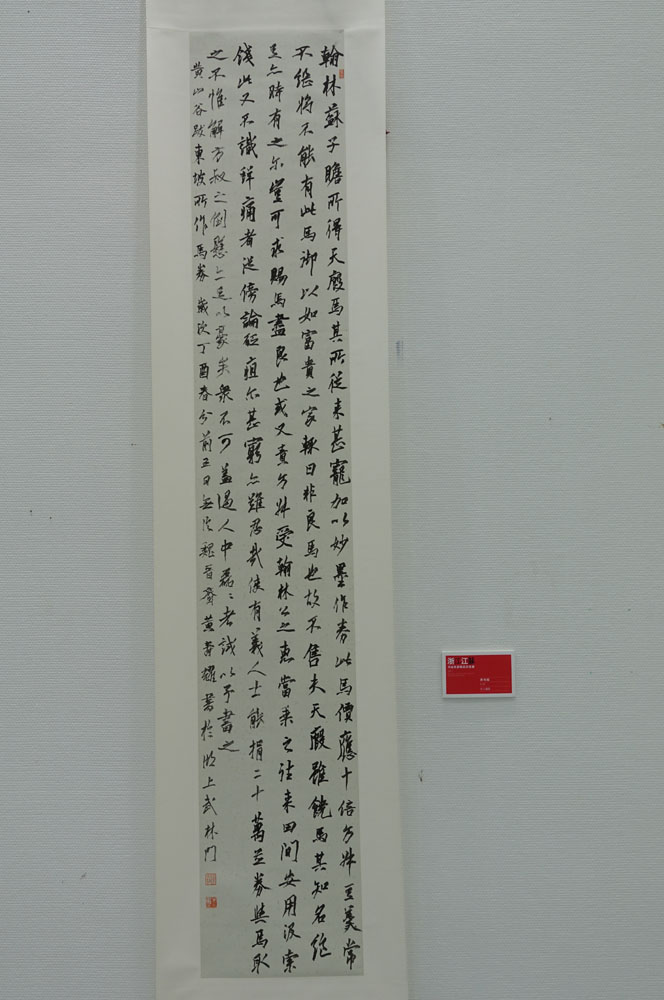 翰林蘇子瞻所得天廄馬其所從来甚寵加以妙墨作券此馬價應十倍方叔豆羹常
不繼將不能有此馬御以如富貴之家輒曰非良馬也故不售夫天廄雖饒馬其知名絕
足亦時有之尔豈可求賜馬盡良也或又責方叔受翰林公之惠當乘之往来田間安用汲索
錢此又不識蛘痛者從傍論砭疽尔甚窮亦難忍哉使有義人士能捐二十萬並券與馬取
之不惟解方叔之倒懸亦足以豪矣衆不可蓋遇人中磊々者試以予書之
黄山谷跋東坡所作馬券歲次丁酉春分前五日無魏晉齋黄壽耀書於湖上武林門
浙江